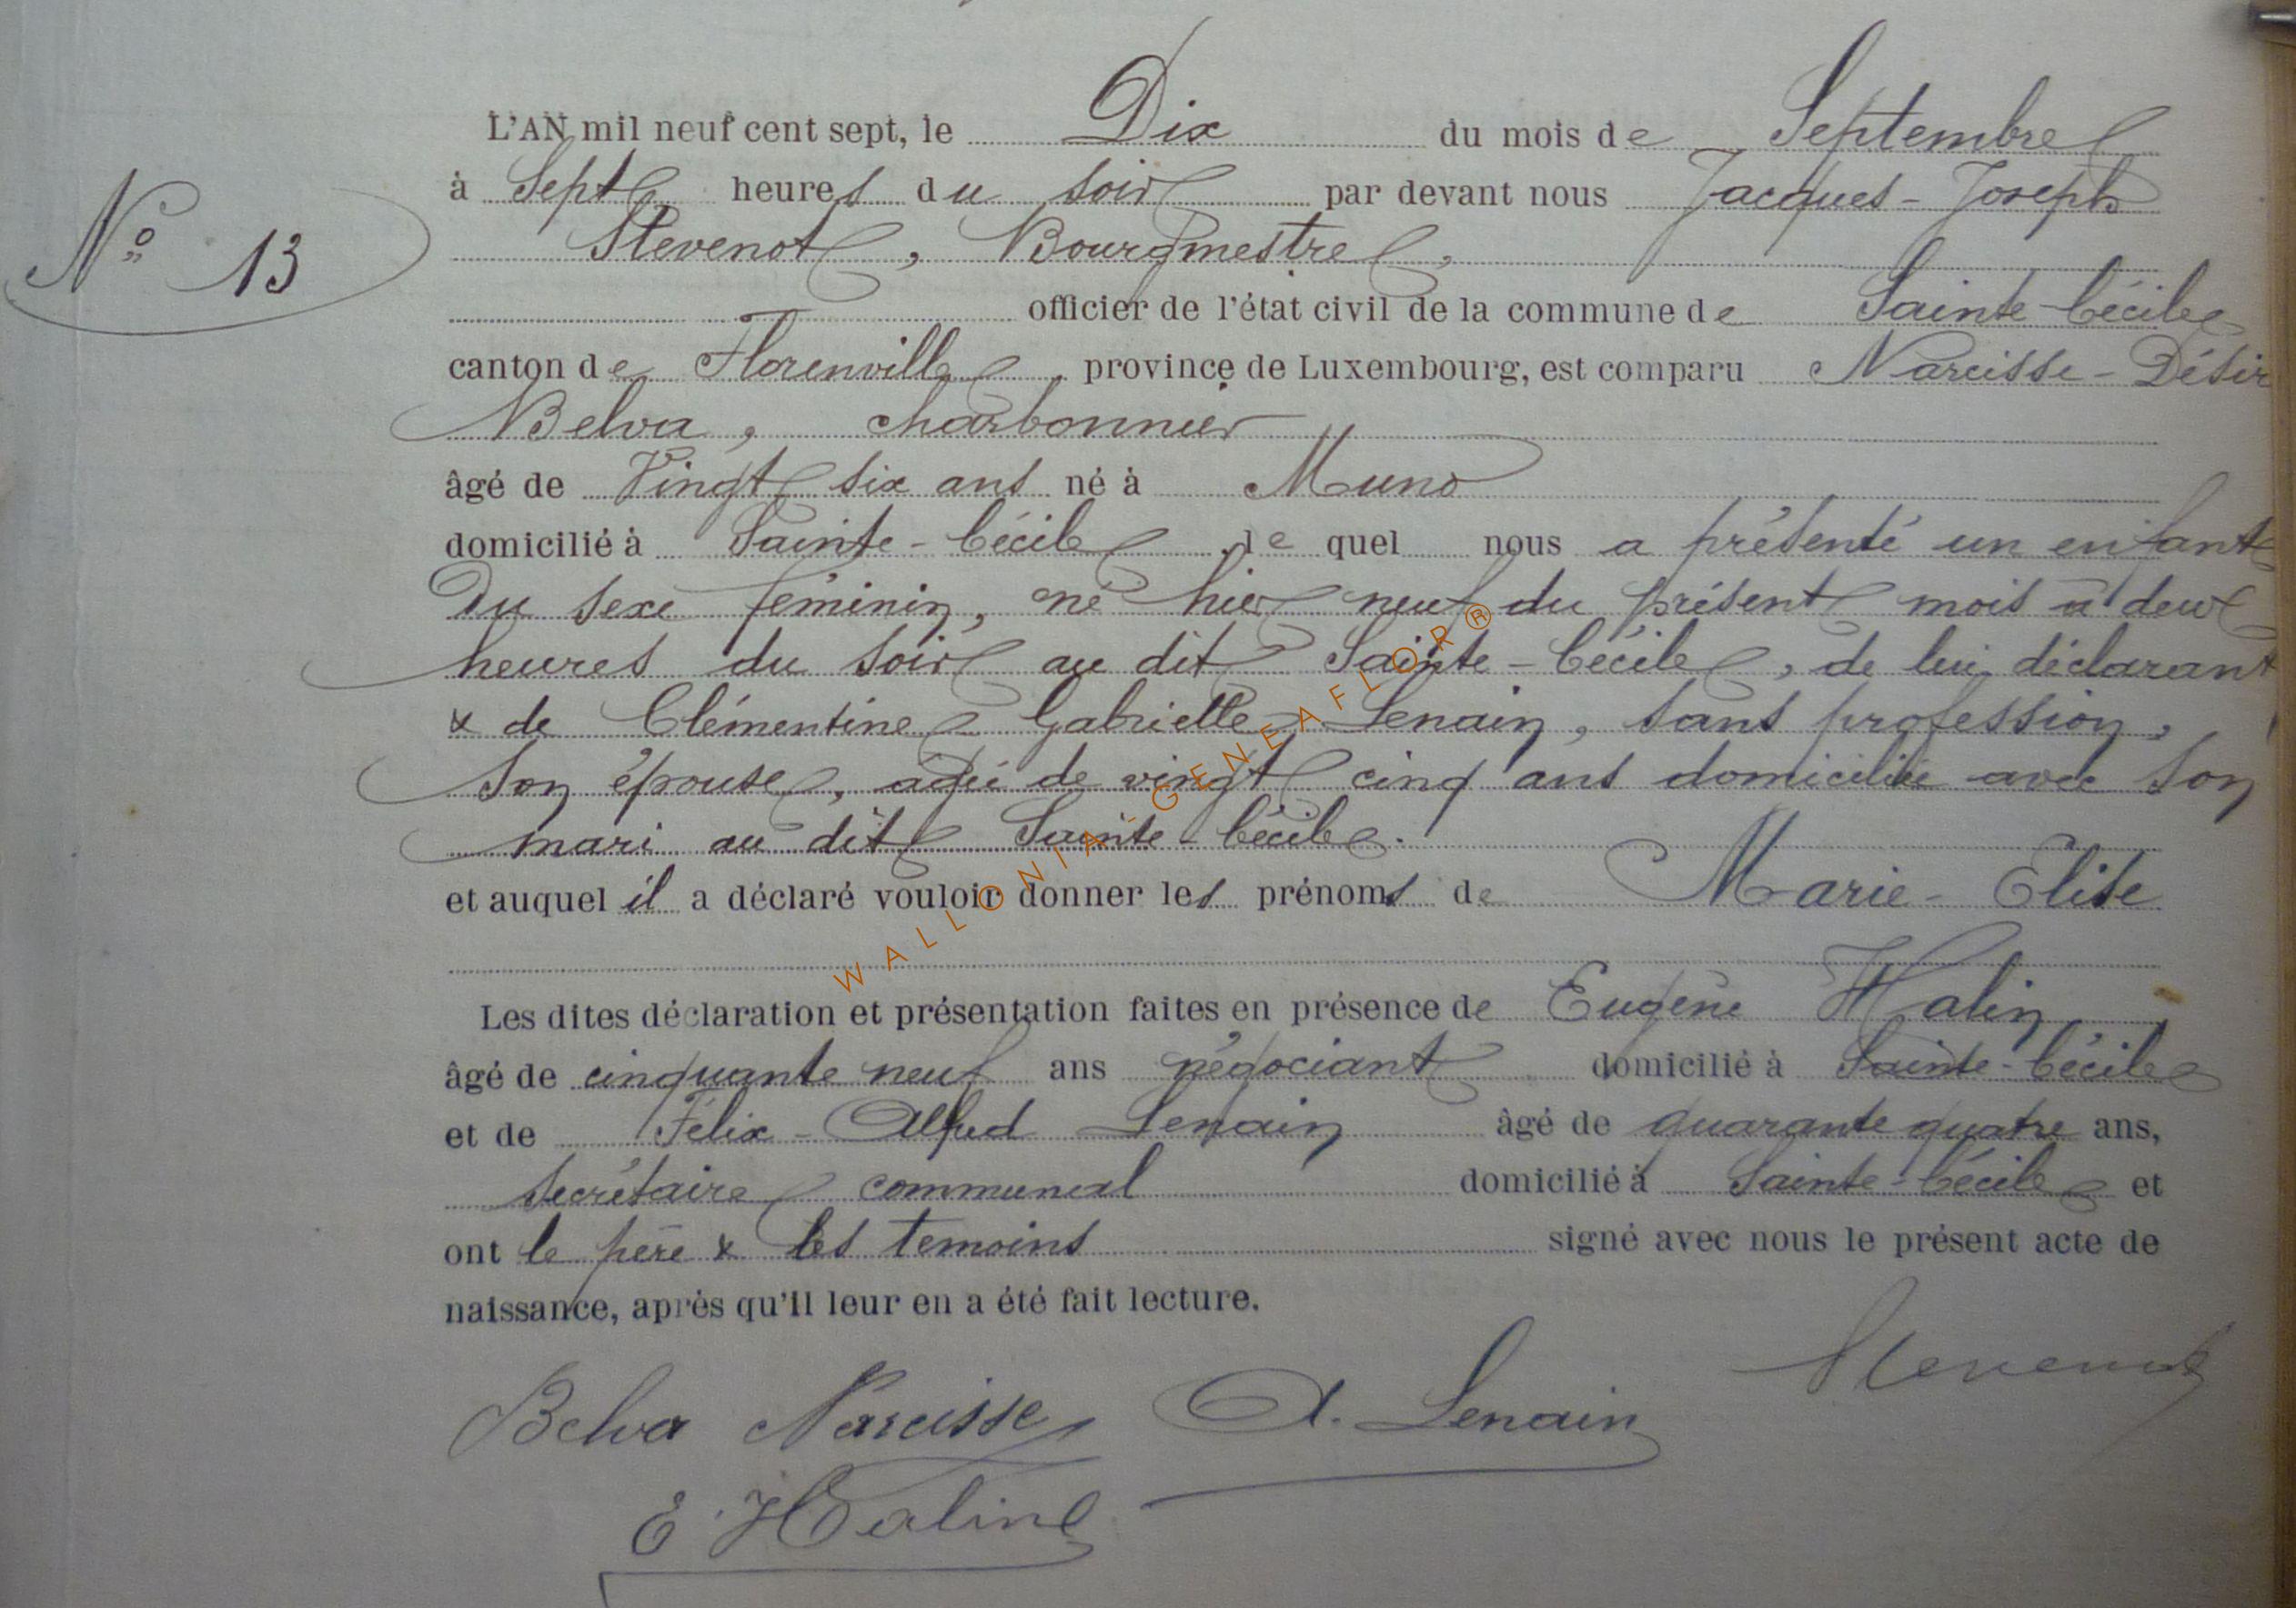 L'AN mil neuf cent sept, le Dix du mois de Septembre
à Sept heures du soir par devant nous Jacques-Joseph
N° 13
Stevenot, Bourgmestre,
officier de l'état civil de la commune de Sainte-Cécile
canton de Florenville, province de Luxembourg, est comparu Narcisse-Désir
Belva, charbonnier
âgé de Vingt six ans né à Muno
domicilié à Sainte-Cécile, le quel nous a présenté un enfant
Du sexe féminin, né hier neuf du présent mois à deux
heures du soir au dit Sainte-Cécile, de lui déclarant
& de Clémentine Gabrielle Lenain, sans profession,
son épouse, agée de vingt cinq ans domiciliée avec son
mari au dit Sainte-Cécile.
et auquel il a déclaré vouloir donner les prénoms de Marie-Elise
Les dites déclaration et présentation faites en présence de Eugène Halin
âgé de cinquante neuf ans négociant domicilié à Sainte-Cécile
et de Félix-Alfred Lenain âgé de quarante quatre ans,
secrétaire communal domicilié à Sainte-Cécile et
ont le père & les temoins signé avec nous le présent acte de
naissance, après qu'il leur en a été fait lecture.
Belva Narcisse A. Lenain Stevenot
E. Halin
WALLONIA-GENEAFLOR®